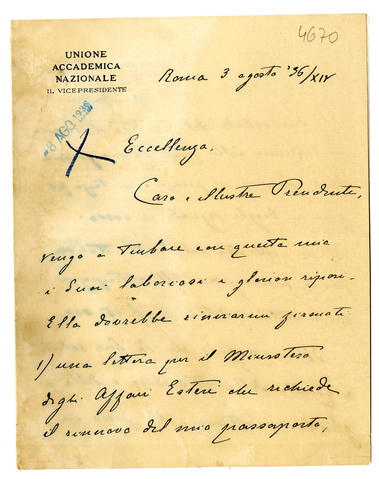 4670
UNIONE
ACCADEMICA
NAZIONALE
IL VICEPRESIDENTE
Roma 3 agosto '36/XIV
-8 AGO 1936
Eccellenza,
Caro e illustre Presidente,
vengo a turbare con questa mia
i Suoi laboriosi e gloriosi riposi.
Ella dovrebbe rinviarmi firmati
1) una lettera per il Ministero
degli Affari Esteri che richiede
il rinnovo del mio passaporto,